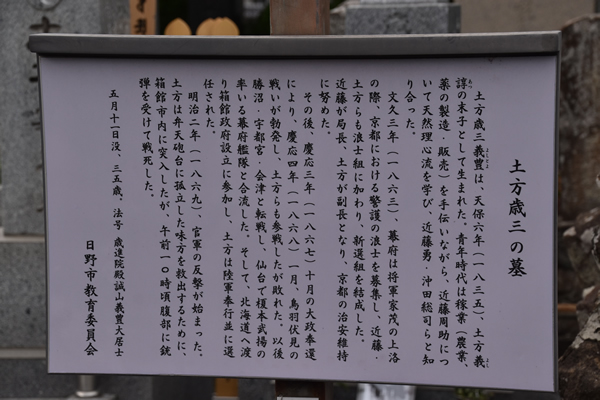 土方歳三の墓
土方歳三義豊は、天保六年(一八三五)、土方義
諄の末子として生まれた。青年時代は稼業(農業、
薬の製造・販売)を手伝いながら、近藤周助につ
いて天然理心流を学び、近藤勇・沖田総司らと知
り合った。
文久三年(一八六三)、幕府は将軍家茂の上洛
の際、京都における警護の浪士を募集し、近藤・
土方らも浪士組に加わり、新選組を結成した。
近藤が局長、土方が副長となり、京都の治安維持
に努めた。
その後、慶応三年(一八六七)十月の大政奉還
により、慶応四年(一八六八)一月、鳥羽伏見の
戦いが勃発し、土方らも参戦したが敗れた。以後
勝沼・宇都宮・会津と転戦し、仙台で榎本武揚の
率いる幕府艦隊と合流した。そして、北海道へ渡
り箱館政府設立に参加し、土方は陸軍奉行並に選
任された。
明治二年(一八六九)、官軍の反撃が始まった。
土方は弁天砲台に孤立した味方を救出するために、
箱館市内に突入したが、午前一〇時頃腹部に銃
弾を受けて戦死した。
五月十一日没、三五歳、法号 歳進院殿誠山義豊大居士
日野市教育委員会